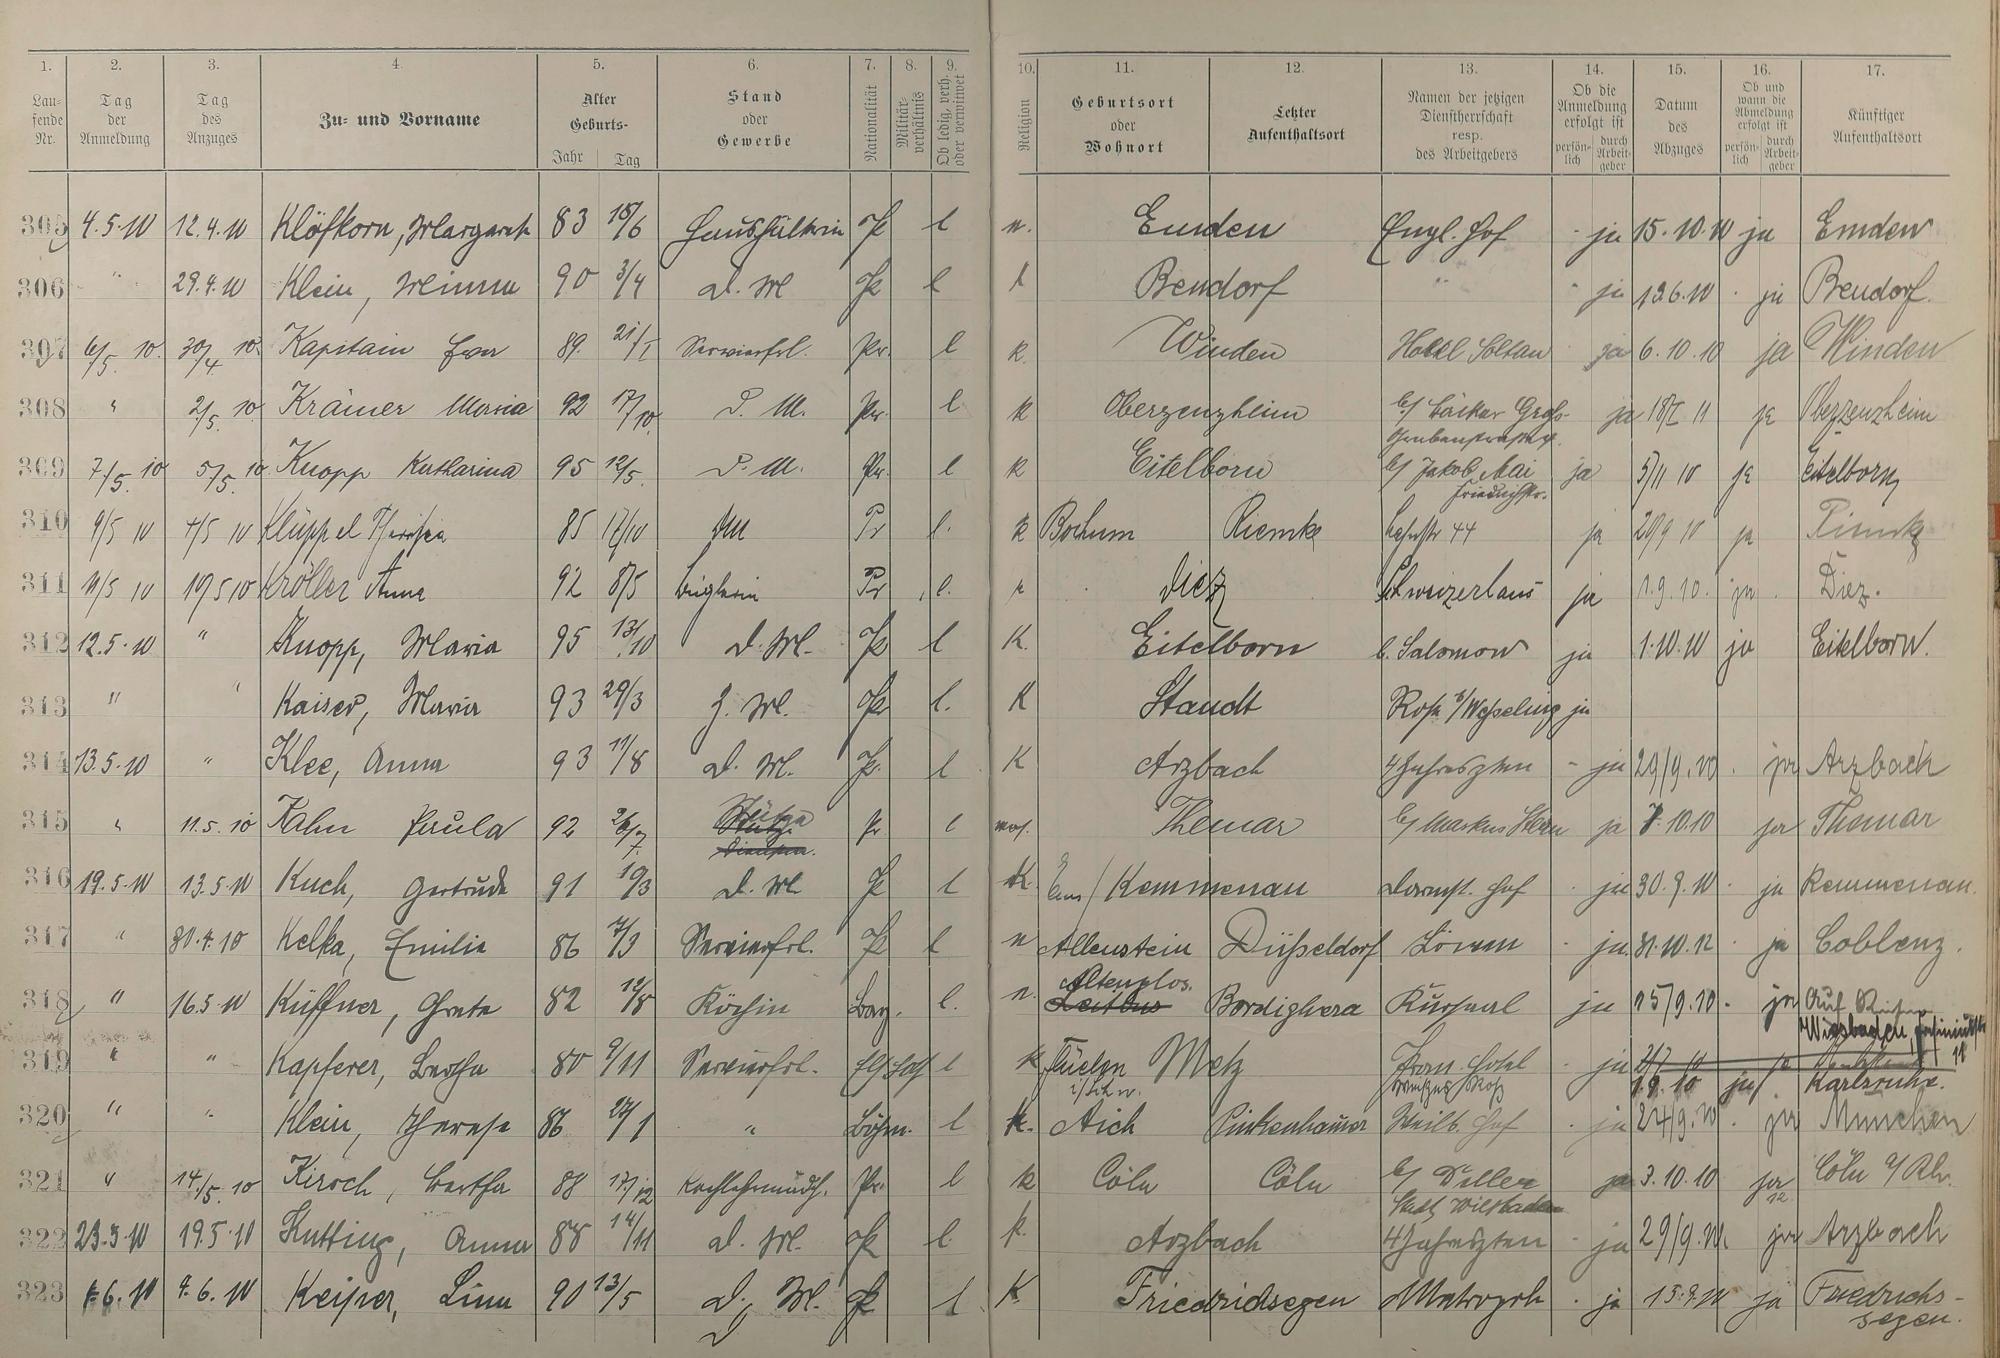 1. 2. 3. 4. 5. 6. 7. 8. 9. 10. 11. 12. 13. 14. 15. 16. 17.
Laufende Nr. Tag der Anmeldung Tag des Anzuges Zu- und Vorname Alter Geburts- Jahr Tag Stand oder Gewerbe Nationalität Militärverhältnis Ob ledig, verh. oder verwitwet Religion Geburtsort oder Wohnort Letzter Aufenthaltsort Namen der jetzigen Dienstherrschaft resp. des Arbeitgebers Ob die Anmeldung erfolgt ist persönlich durch Arbeitgeber Datum des Abzuges Ob und wann die Abmeldung erfolgt ist persönlich durch Arbeitgeber Künftiger Aufenthaltsort
305 4.5.10 12.4.10 Klöfkorn, Margareth 83 18/6 Haushälterin Pr l n. Emden Engl. Hof ja 15.10.10 ja Emden
306 " 29.4.10 Klein, Minna 90 3/4 D. M Pr l Bendorf " " ja 12.6.10 ja Bendorf.
307 6/5. 10. 30/4 10. Kapitain Eva 89. 21/1 Servierfrl. Pr. l k. Winden Hotel Soltau ja 6.10.10 ja Winden
308 " 2/5. 10 Krämer Maria 92 17/10. D. M. Pr. l k Oberzenzheim b/ Bäcker Groß ja 18/I 11 ja Oberzeuzheim
Grabenstraße
309 7/5. 10 5/5. 10 Knopp Katharina 95 12/5. D. M. Pr. l k Eitelborn b/ Jakob Mai ja 5/11 10 ja Eitelborn
Friedrichstr.
310 9/5 10 4/5 10 Klüppel Theresia 85 17/10 DM Pr l. k Bochum Riemke 44 ja 20/9 10 ja Riemke
311 11/5 10 10/5 10 Kröller Anna 92 8/5 Büglerin Pr l. k Diez Schweizerhaus ja 1.9.10. ja Diez.
312 12.5.10 " Knopp, Maria 95 13/10 D. M. Pr l K. Eitelborn b. Salomon ja 1.10.10 ja Eitelborn.
313 " " Kaiser, Maria 93 29/3 H. M. Pr l. K Staudt Roß b/ Weseling ja
314 13.5.10 " Klee, Anna 93 11/8 D. M. Pr. l K Arzbach 4 Jahreszten ja 29/9.10. ja Arzbach
315 " 11.5.10 Kahn Paula 92 26/7. Stütze Pr l mos. Themar b/ Markus Stern ja 7.10.10 ja Themar
316 19.5.10 13.5.10 Kuch, Gertrude 91 19/3 D. M Pr l K. Ems / Kemmenau Darmst. Hof ja 30.9.10. ja Kemmenau.
317 " 30.4.10 Kelka, Emilie 86 7/3 Servierfrl. Pr l n Allenstein Düsseldorf Löwen ja. 31.10.12 ja Coblenz.
318 " 16.5.10 Küffner, Greta 82 12/8 Köchin Bay. l. n. Altenplos. Bordighera Kursaal ja 15/9.10. ja Auf Reisen
Wiesbaden,
319 " " Kapferer, Bertha 80 9/11 Servierfrl. Els Loth l k Fluelen Metz Hotel ja
i/Schw. Roß 1.9.10 ja Karlsruhe.
320 " " Klein, Therese 86 27/1 " Böhm. l k. Aich Pinkenhammer Weilb. Hof ja 24/9.10. ja München
321 " 14/5. 10 Kirsch, Bertha 88 17/12 Kochlehrmädch. Pr. l k Cöln Cöln b/ Deller ja 3.10.10 ja Cöln a/Rh.
Stadt Wiesbaden
322 23.5.10 19.5.10 Kutting, Anna 88 14/11 D. M. Pr l. k. Arzbach 4 Jahreszten ja 29/9.10. ja Arzbach
323 6.10 4.6.10 Keiper, Lina 90 13/5 D. M. Pr l K. Friedrichsegen Metropole ja 15.9.10 ja Friedrichs-
segen.